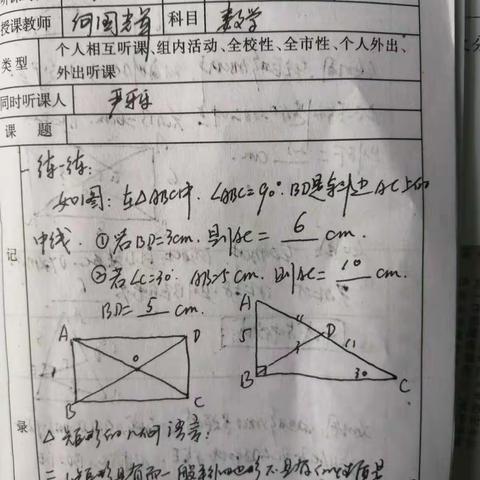 授课教师 何国
科目 数学
类型 个人相互听课、组内活动、全校性、全市性、个人外出、
外出听课
同时听课人 尹
课 题
记
录
练一练:
如图: 在△ABC中. ∠ABC=90°. BD是斜边AC上的
中线. ①若BD=3cm. 则AC= 6 cm.
②若∠C=30°. AB=5cm. 则AC= 10 cm.
BD= 5 cm.
A D
O
B C
A
5 D
B 30 C
△ 矩形的几何语言:
二、1、矩形具有而一般平行四边形不具有的性质是